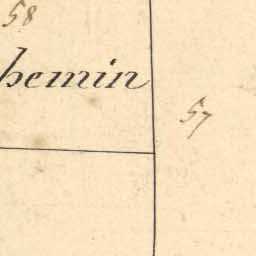 58
hemin
57